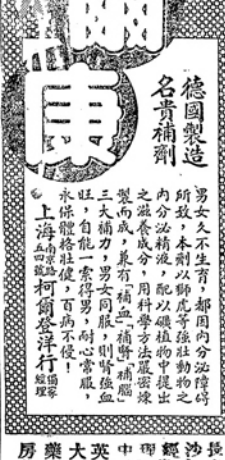 康
德國製造
名貴補劑
男女久不生育,都因內分泌障碍
所致,本劑以獅虎等強壯動物之
內分泌精液,配以礦植物中提出
之滋養成分,用科學方法嚴密煉
製而成,兼有「補血」「補腎」「補腦」
三大補力,男女同服,則腎強血
旺,自能一索得男,耐心常服,
永保體格壯健,百病不侵!
上海南京路五四號柯爾登洋行獨家經理
長沙經理
中英大藥房